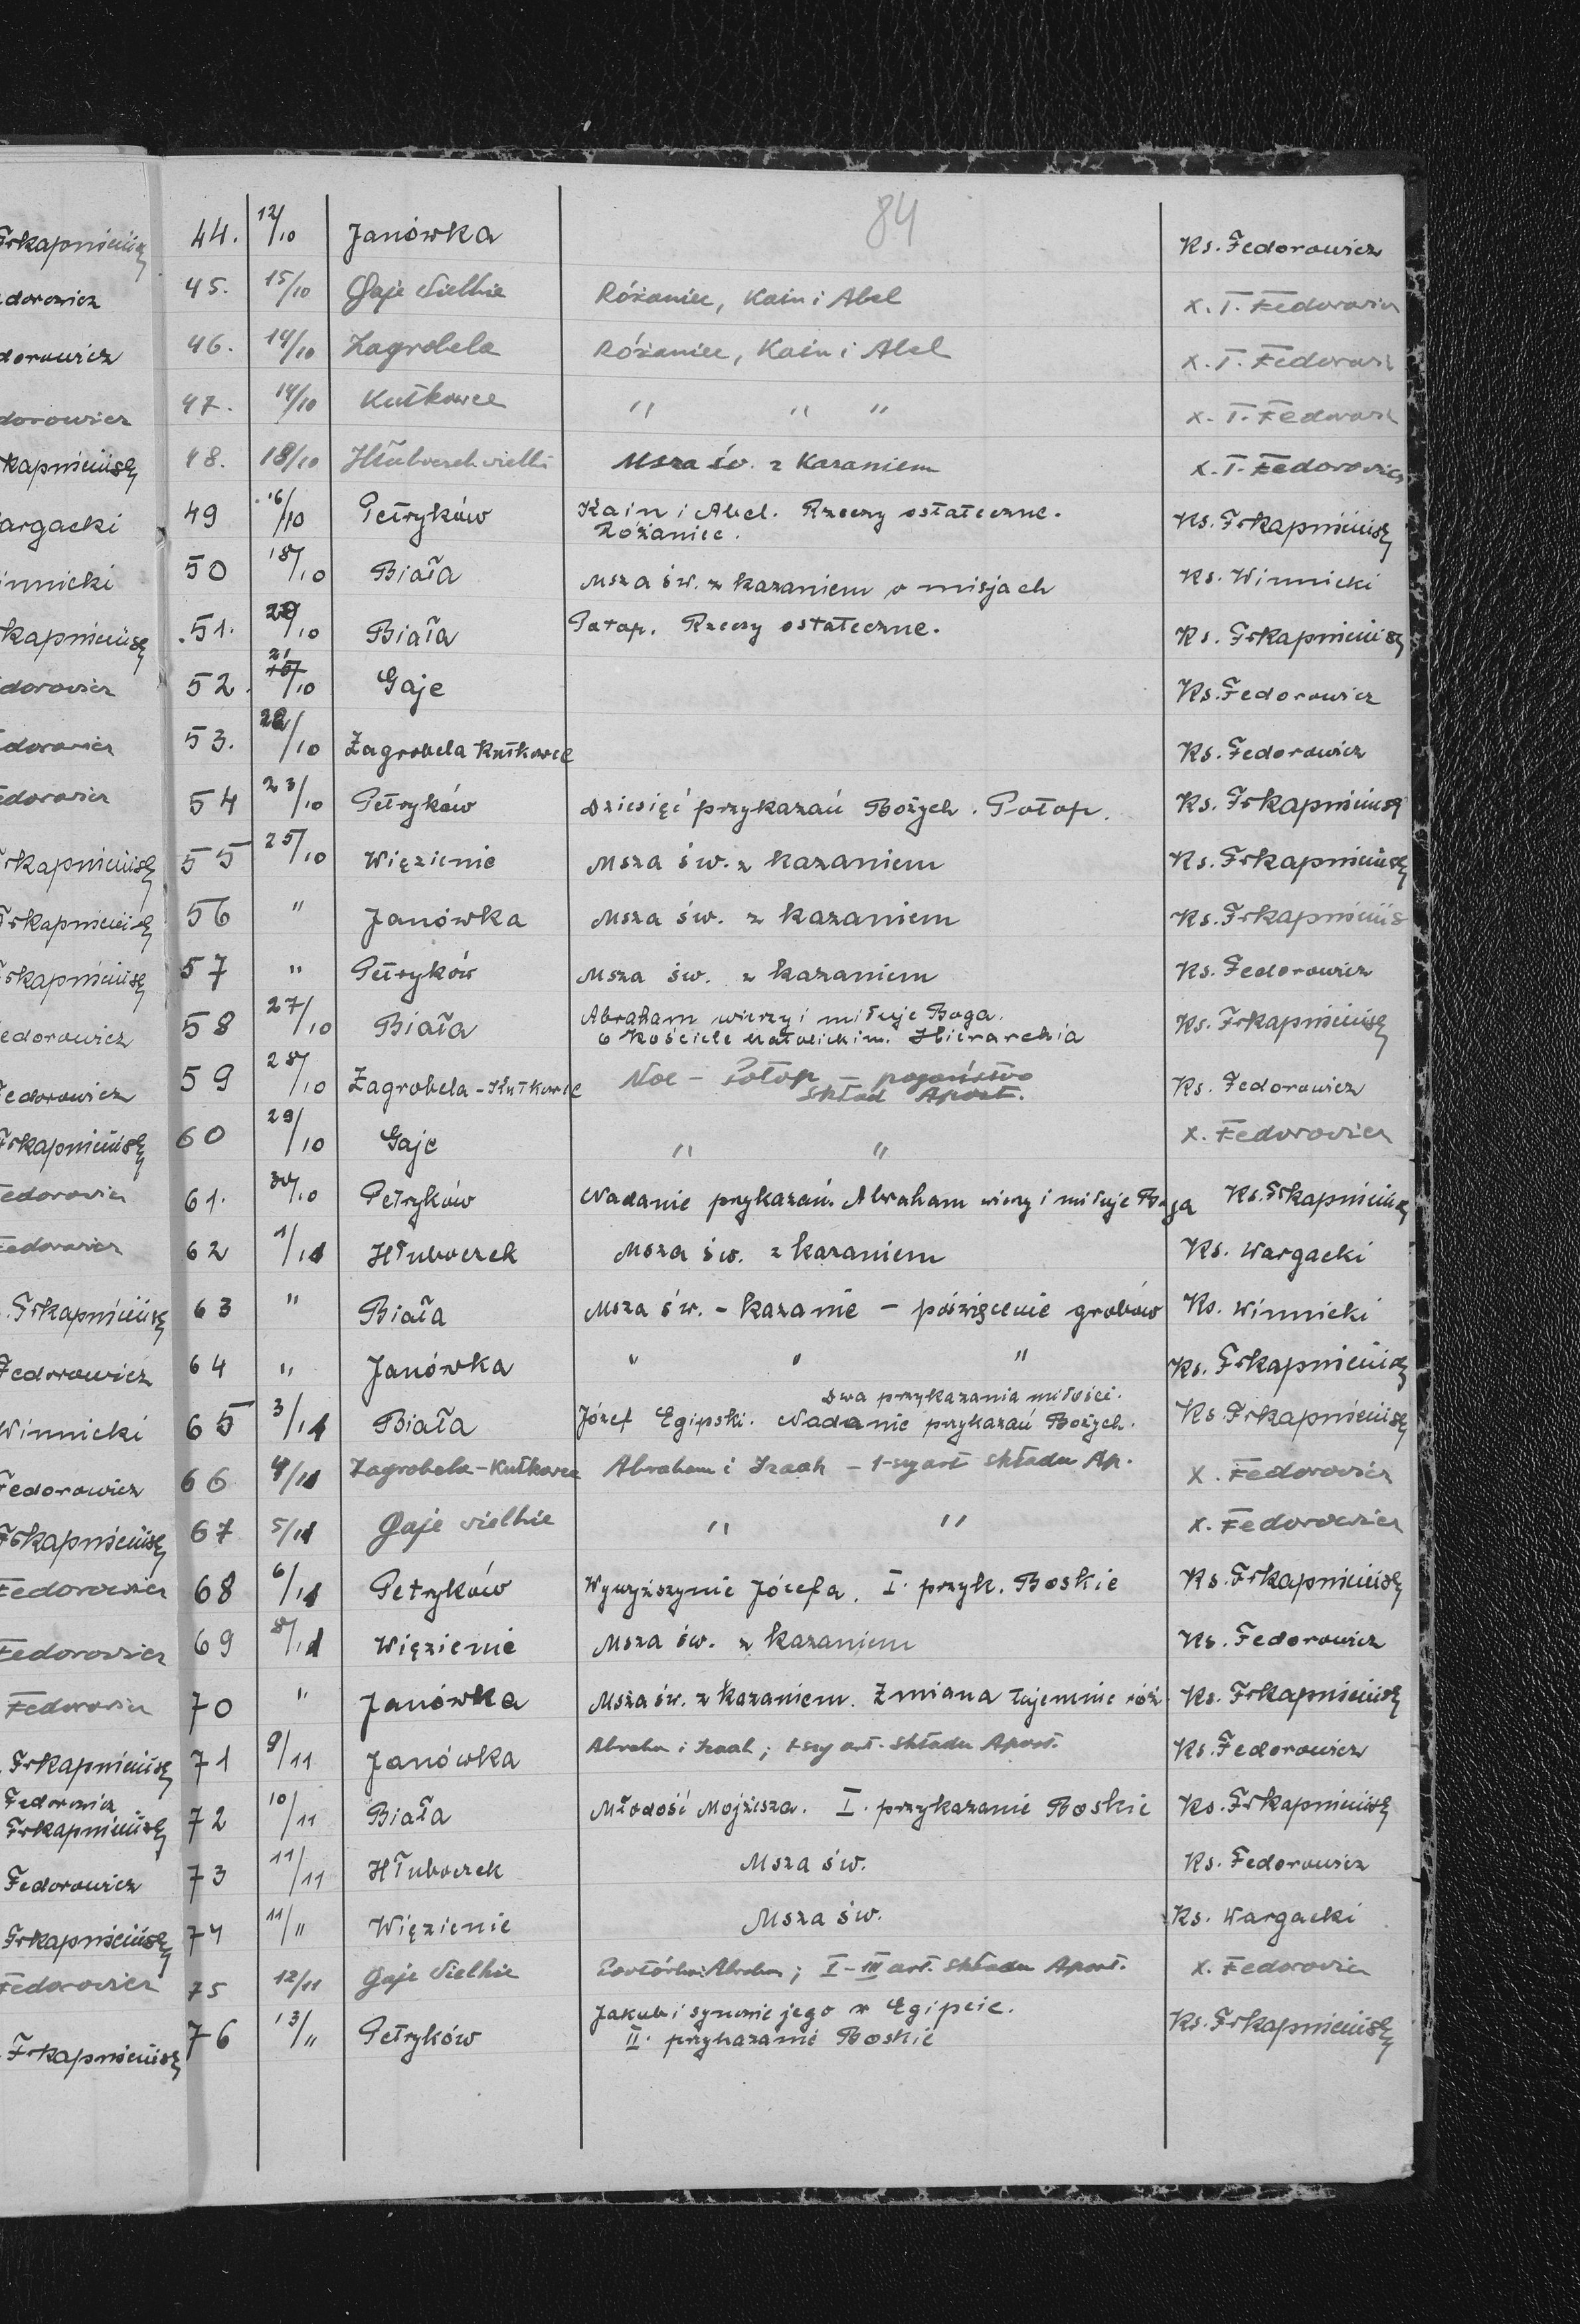 84
44. 12/10 Janówka Ks. Fedorowicz
45. 15/10 Gaje Wielkie Różaniec, Kain i Abel X. T. Fedorowicz
46. 14/10 Zagrobela Różaniec, Kain i Abel X. T. Fedorowicz
47. 14/10 Kutkowce " " " X. T. Fedorowicz
48. 18/10 Hłuboczek wielki Msza św. z Kazaniem X. T. Fedorowicz
49 16/10 Petryków Kain i Abel. Rzeczy ostateczne.
Różaniec. Ks.
50 18/10 Biała Msza św. z kazaniem o misjach Ks. Winnicki
51. 20/10 Biała Potop. Rzeczy ostateczne. Ks.
52. 21/10 Gaje Ks. Fedorowicz
53. 22/10 Zagrobela Kutkowce Ks. Fedorowicz
54 23/10 Petryków Dziesięć przykazań Bożych. Potop. Ks.
55 25/10 Więzienie Msza św. z kazaniem Ks.
56 " Janówka Msza św. z kazaniem Ks.
57 " Petryków Msza św. z kazaniem Ks. Fedorowicz
58 27/10 Biała Abraham wierzy i miłuje Boga.
O Kościele Katolickim. Hierarchia Ks.
59 28/10 Zagrobela - Kutkowce Noe - Potop - pogaństwo
Skład Apost. Ks. Fedorowicz
60 29/10 Gaje " " X. Fedorowicz
61. 30/10 Petryków Nadanie przykazań. Abraham wierzy i miłuje Boga Ks.
62 1/11 Hłuboczek Msza św. z kazaniem Ks. Wargacki
63 " Biała Msza św. - kazanie - poświęcenie grobów Ks. Winnicki
64 " Janówka " " " Ks.
Dwa przykazania miłości.
65 3/11 Biała Józef Egipski. Nadanie przykazań Bożych. Ks.
66 4/11 Zagrobela - Kutkowce Abraham i Izaak - 1-szy art składu Ap. X. Fedorowicz
67 5/11 Gaje Wielkie " " X. Fedorowicz
68 6/11 Petryków Wywyższynie Józefa. I. przyk. Boskie Ks.
69 8/11 Więzienie Msza św. z kazaniem Ks. Fedorowicz
70 " Janówka Msza św. z kazaniem. Zmiana tajemnic róż. Ks.
71 9/11 Janówka Abraha i Izaak; 1-szy art. składu Apost. Ks. Fedorowicz
72 10/11 Biała Młodość Mojżesza. I. przykazanie Boskie Ks.
73 11/11 Hłuboczek Msza św. Ks. Fedorowicz
74 11/" Więzienie Msza św. Ks. Wargacki
75 12/11 Gaje Wielkie I-III art. składu Apost. X. Fedorowicz
76 13/" Petryków Jakub i synowie jego w Egipcie.
II. przykazanie Boskie Ks.